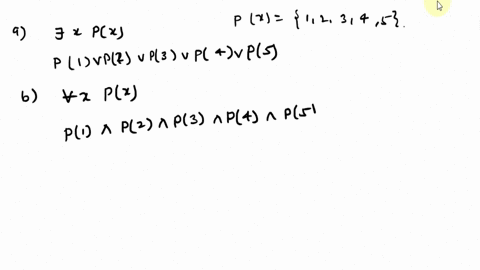 a) ∃ x P(x) P(x) = {1, 2, 3, 4, 5}.
P(1) ∨ P(2) ∨ P(3) ∨ P(4) ∨ P(5)
b) ∀x P(x)
P(1) ∧ P(2) ∧ P(3) ∧ P(4) ∧ P(5)